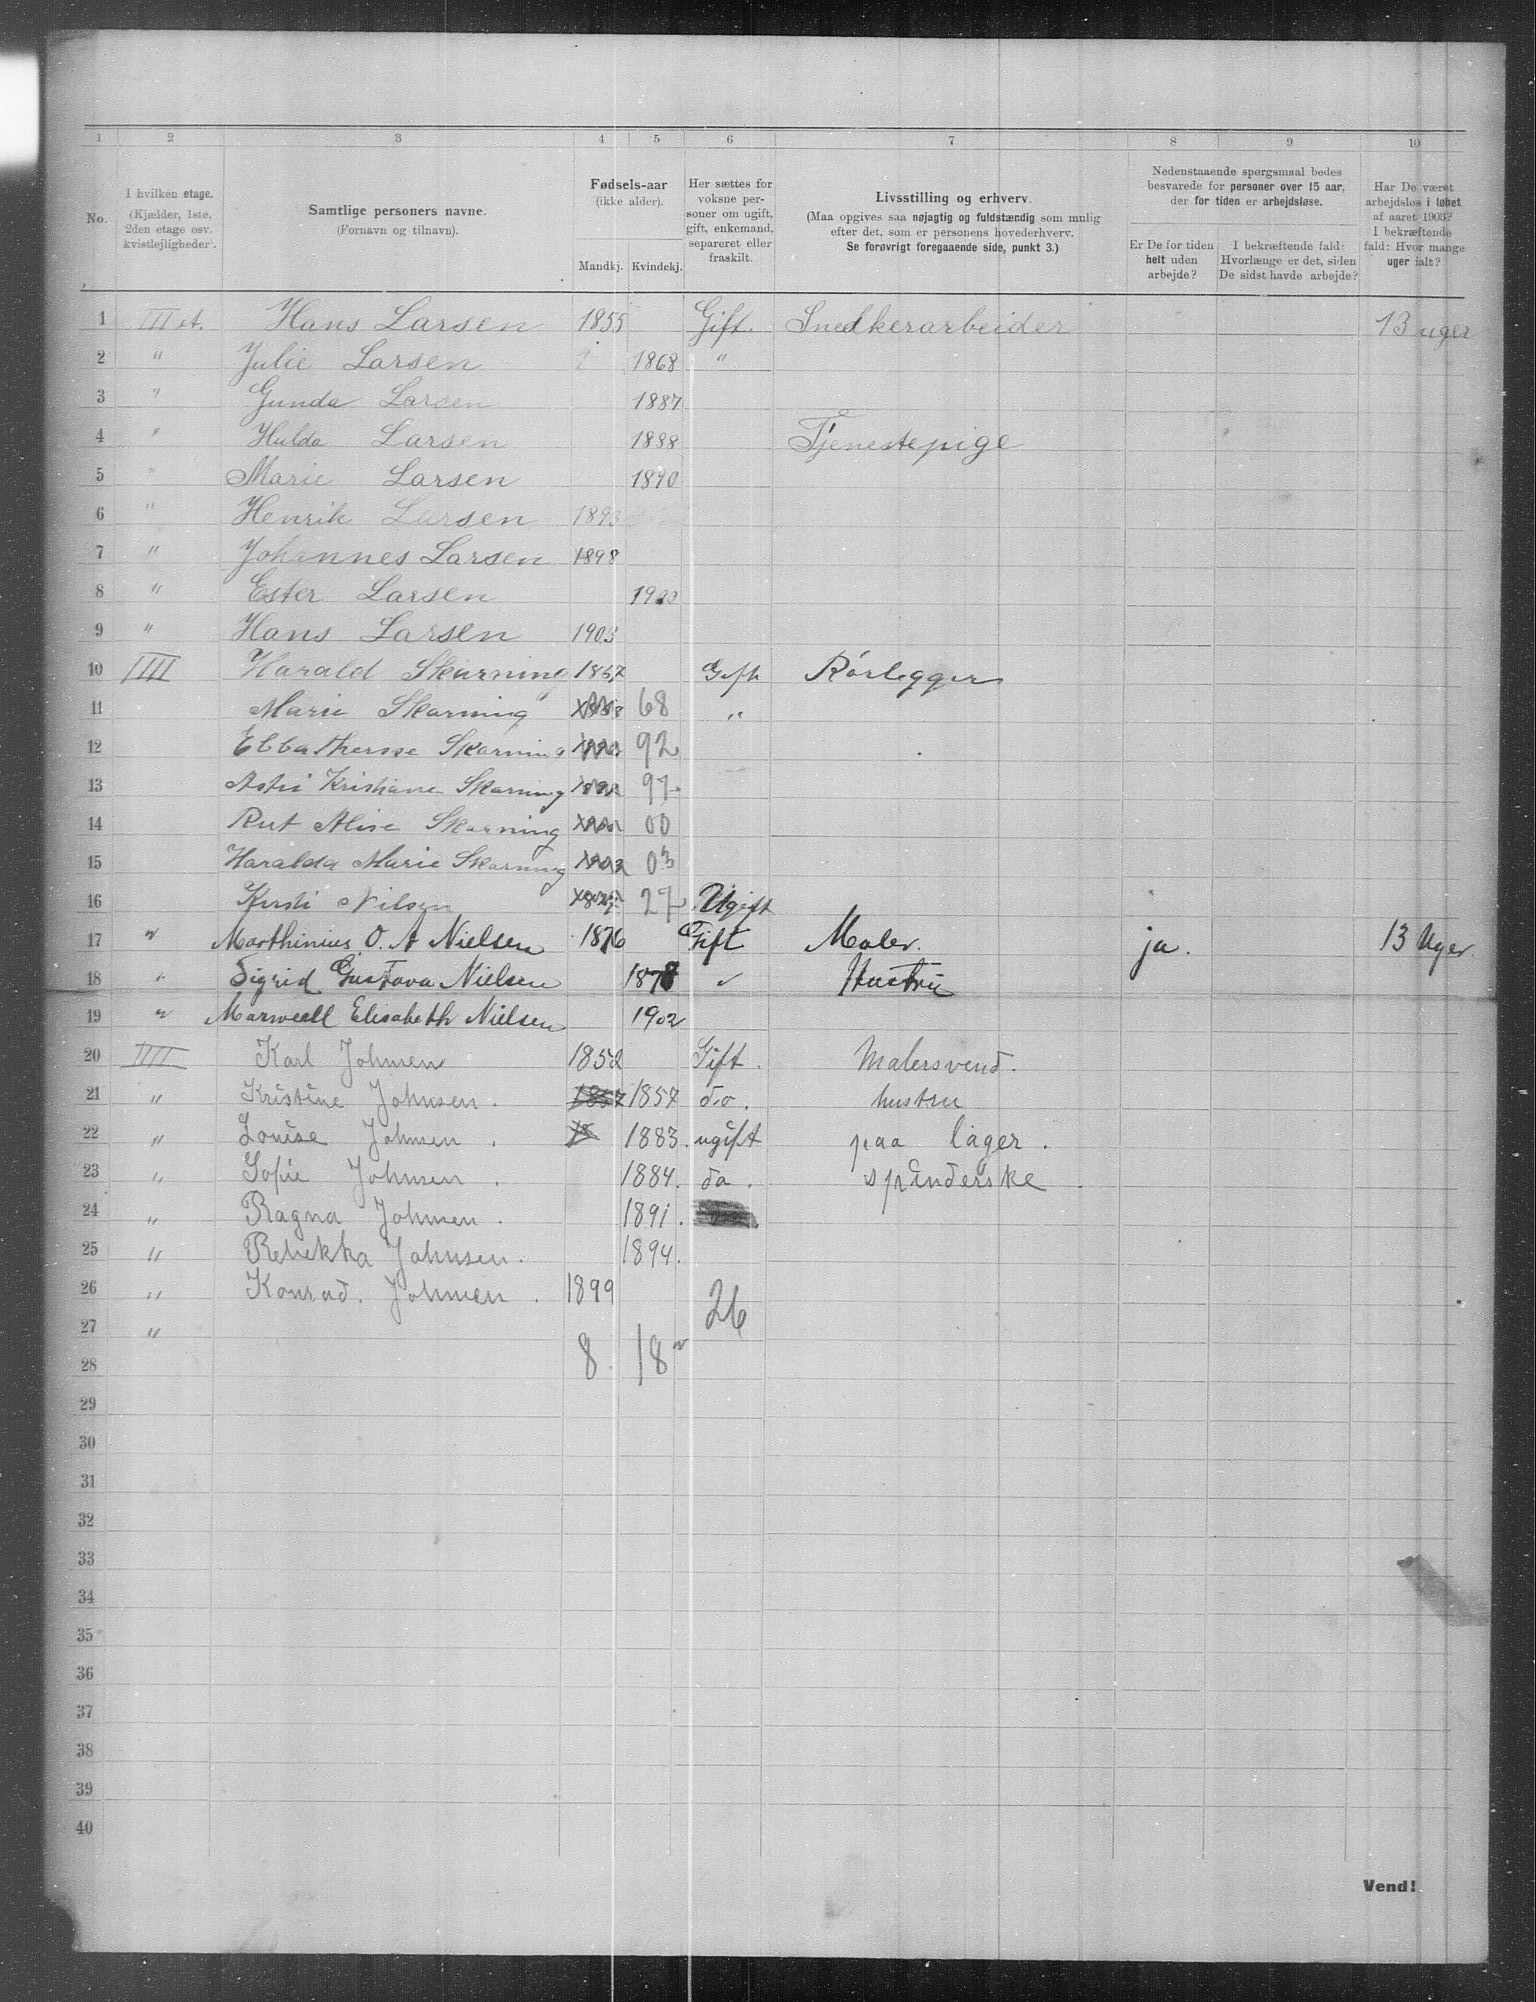 1 2 3 4 5 6 7 8 9 10
No.
I hvilken etage. (Kjælder, 1ste, 2den etage osv. kvistlejligheder).
Samtlige personers navne. (Fornavn og tilnavn).
Fødsels-aar (ikke alder). Mandkj. Kvindekj.
Her sættes for voksne personer om ugift, gift, enkemand, separeret eller fraskilt.
Livsstilling og erhverv. (Maa opgives saa nøjagtig og fuldstændig som mulig efter det, som er personens hovederhverv. Se forøvrigt foregaaende side, punkt 3.)
Nedenstaaende spørgsmaal bedes besvarede for personer over 15 aar, der for tiden er arbejdsløse.
Er De for tiden helt uden arbejde?
I bekræftende fald: Hvorlænge er det, siden De sidst havde arbejde?
Har De været arbejdsløs i løbet af aaret 1903? I bekræftende fald: Hvor mange uger ialt?
1 III et. Hans Larsen 1855 Gift. Snedkerarbeider 13 uger
2 " Julie Larsen 1868 "
3 " Gunda Larsen 1887
4 " Hulda Larsen 1888 Tjenestepige
5 " Marie Larsen 1890
6 " Henrik Larsen 1893
7 " Johannes Larsen 1898
8 " Ester Larsen 1900
9 " Hans Larsen 1903
10 IIII Harald Skarning 1867 Gift Rørlegger
11 Marie Skarning 68 "
12 Ebba Therese Skarning 92
13 Astri Kristiane Skarning 97
14 Rut Alise Skarning 00
15 Haralda Marie Skarning 03
16 Kersti Nilsen 27 Ugift
17 " Marthinius O. A Nielsen 1876 Gift Maler. ja. 13 Uger.
18 " Sigrid Gustava Nielsen 1878 " Hustru
19 " Marweell Elisabeth Nielsen 1902
20 IIII Karl Johnsen 1852 Gift. Malersvend.
21 " Kristine Johnsen. 1857 1857 do. hustru
22 " Louise Johnsen. 18 1883. ugift paa lager.
23 " Sofie Johnsen. 1884. do. spinderske.
24 " Ragna Johnsen. 1891.
25 " Rebekka Johnsen. 1894.
26 " Konrad. Johnsen. 1899
26
27 "
28 8 18
29
30
31
32
33
34
35
36
37
38
39
40
Vend!